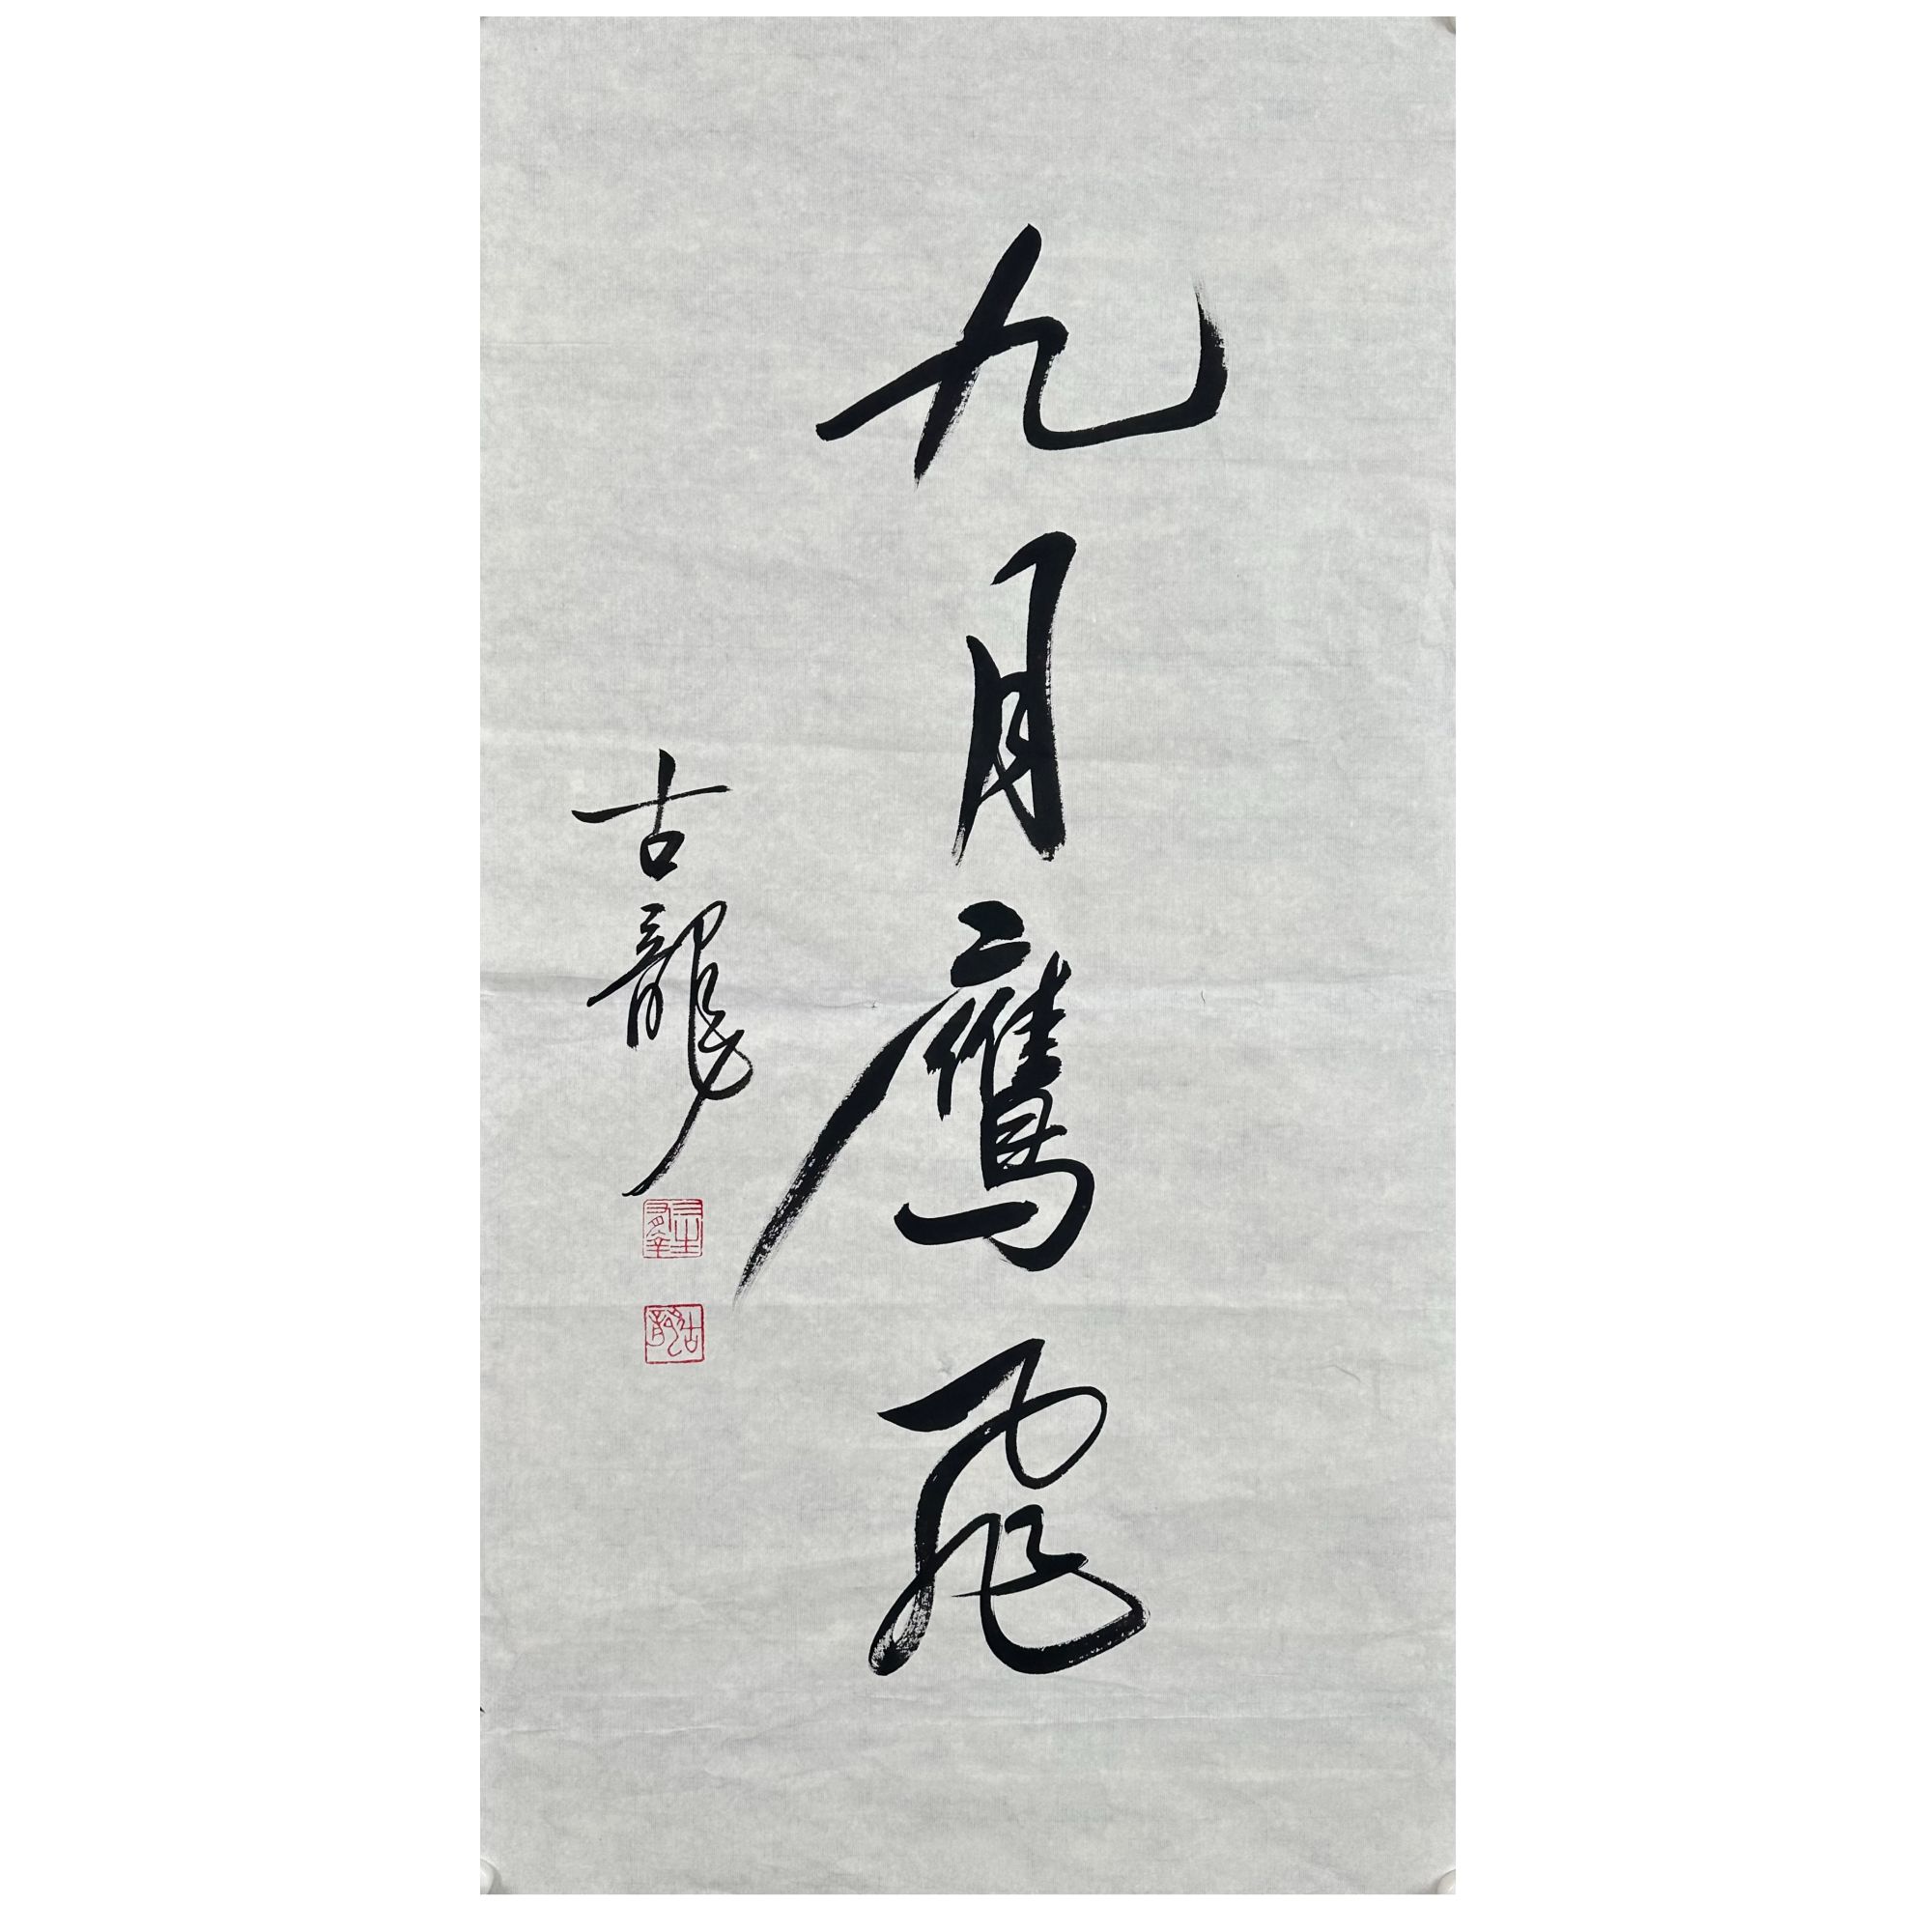 九月鷹飛
古龍
古龍